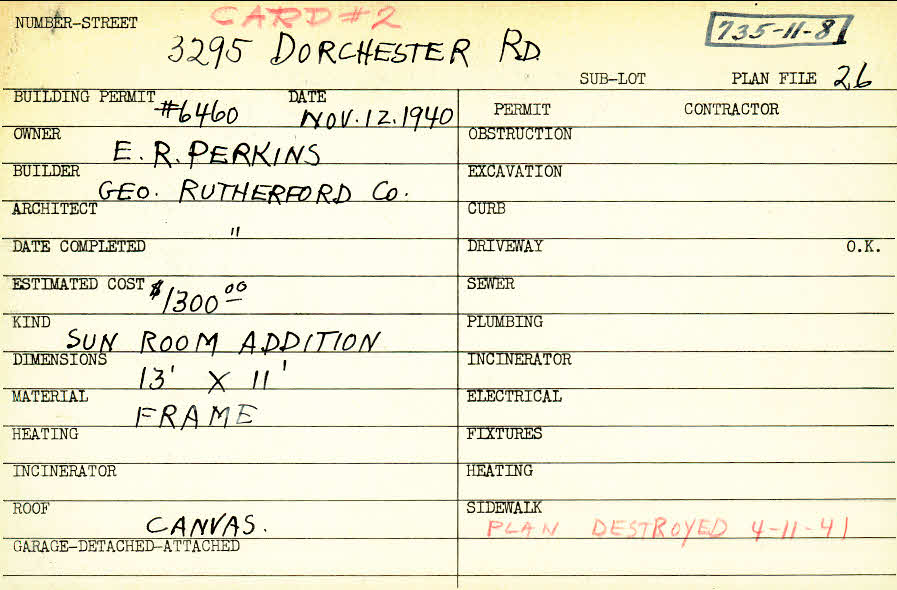 CARD #2
NUMBER-STREET
735-11-8
3295 DORCHESTER RD.
SUB-LOT PLAN FILE 26
BUILDING PERMIT #6460 DATE NOV. 12. 1940
PERMIT CONTRACTOR
OWNER E. R. PERKINS
OBSTRUCTION
BUILDER GEO. RUTHERFORD CO.
EXCAVATION
ARCHITECT "
CURB
DATE COMPLETED
DRIVEWAY O.K.
ESTIMATED COST $1300.00
SEWER
KIND SUN ROOM ADDITION
PLUMBING
DIMENSIONS 13' X 11'
INCINERATOR
MATERIAL FRAME
ELECTRICAL
HEATING
FIXTURES
INCINERATOR
HEATING
ROOF CANVAS.
SIDEWALK
PLAN DESTROYED 4-11-41
GARAGE-DETACHED-ATTACHED